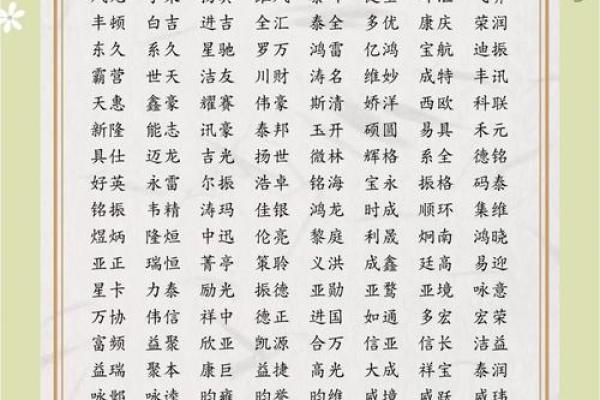 丰顿 白吉 进吉 全汇 泰全 多优 康庆 荣润
东久 系久 星驰 罗万 鸿雷 亿鸿 宝航 迪振
霸营 世天 洁友 川财 涛名 维妙 成特 丰讯
天惠 鑫豪 耀赛 伟豪 斯清 娇洋 西欧 科联
新隆 能志 讯豪 泰邦 玉开 硕圆 易具 禾元
具仕 迈龙 吉光 扬世 微林 辉格 系全 德铭
好英 永雷 尔振 浩卓 铭海 宝永 振格 码泰
铭振 韦精 涛玛 佳银 鸿龙 时成 顺环 集维
煜炳 隆恒 中迅 伦亮 黎庭 利晟 炯南 鸿晓
亚正 瑞恒 菁亭 策聆 义洪 成鑫 廷高 易迎
星卡 力泰 励光 振德 亚勋 亚鹜 亚境 咏意
万协 伟信 祥中 德正 进国 如通 多宏 宏荣
富频 益聚 欣亚 凯源 合万 信亚 信长 洁益
益瑞 聚本 康巨 益捷 高光 大成 祥宝 泰润